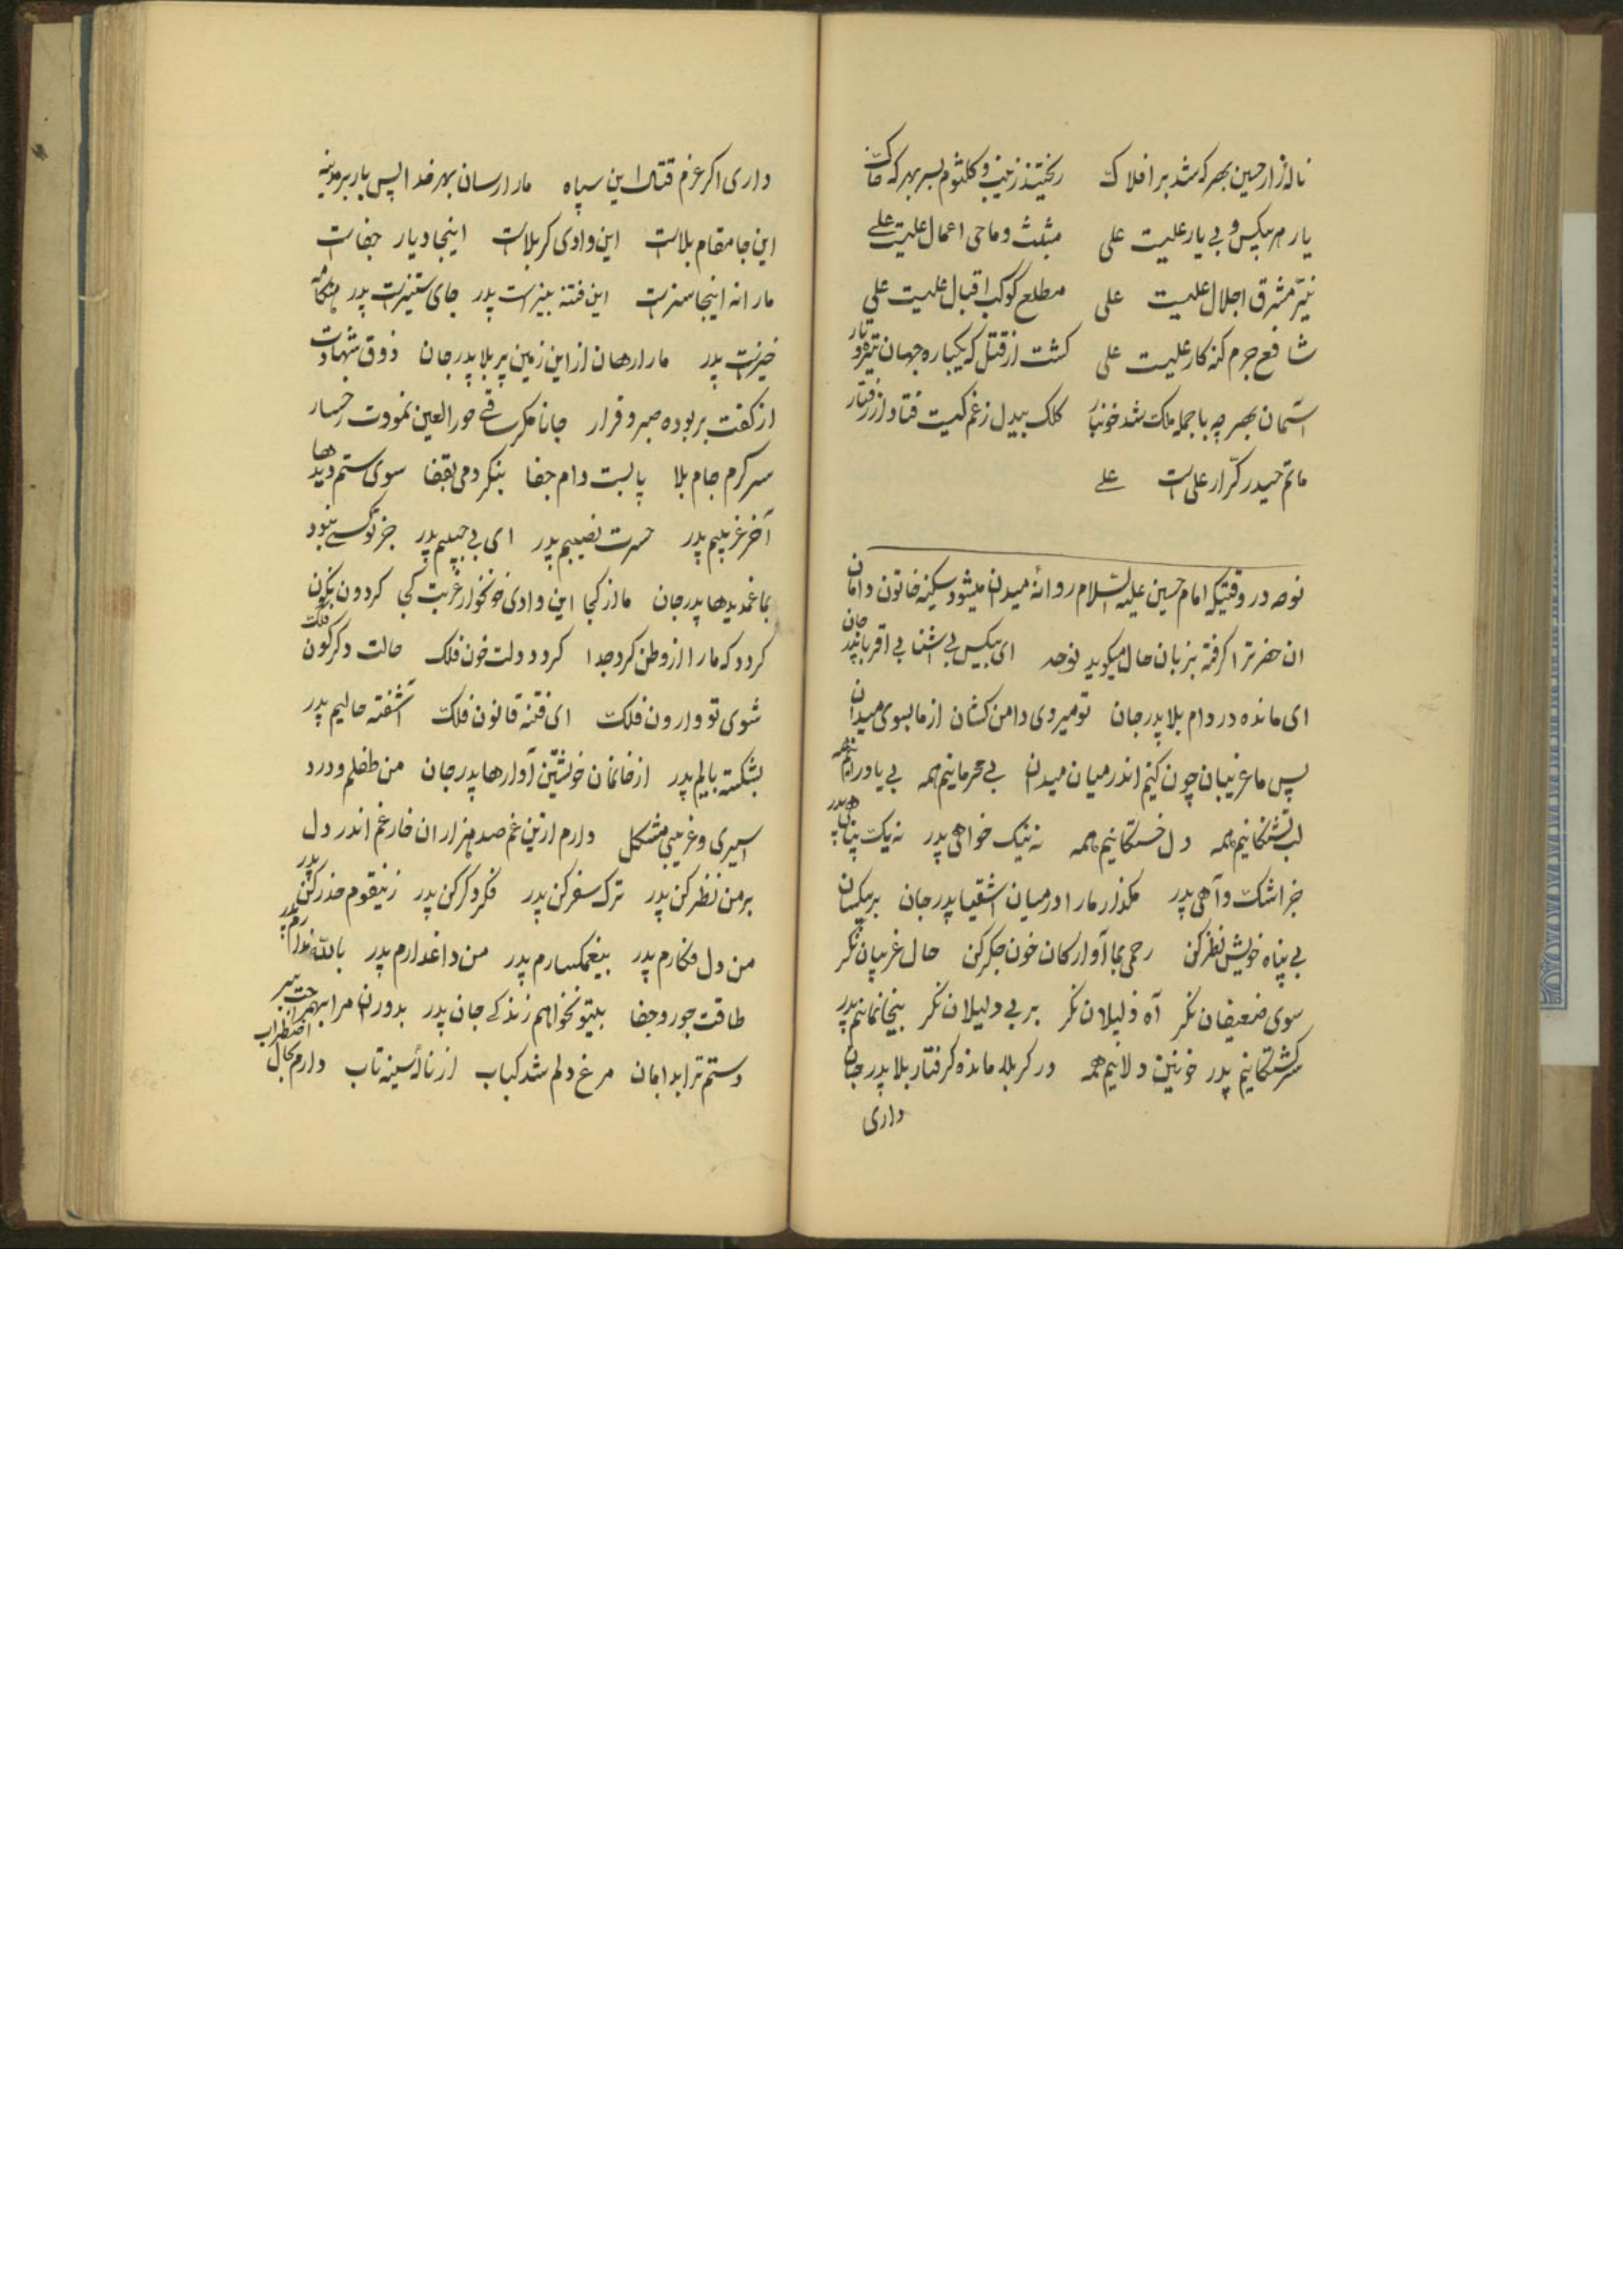 نالهٔ زار حسین بهر که شد بر افلاک ریختند زینب و کلثوم بسر بهر که خاک
یار هر بیکس و بی یار علیست علی مثبت و ماحی اعمال علیست علی
نیّر مشرق اجلال علیست علی مطلع کوکب اقبال علیست علی
شافع جرم کنه کار علیست علی کشت از قتل که یکباره جهان تیره و تار
آسمان بهر چه با جمله ملک شد خونبار کلک بیدل ز غم کیست فتاد از رفتار
ماتم حیدر کرّار علی است علی
نوحه در وقتیکه امام حسین علیه السلام روانهٔ میدان میشود سکینه خاتون دامان
ان حضرترا کرفته بزبان حال میکوید نوحه ای بیکس بی اشنا بی اقربا پدر جان
ای مانده در دام بلا پدر جان تو میروی دامن کشان از ما بسوی میدان
پس ما غریبان چون کنیم اندر میان میدان بی محرمانیم همه بی یاورانیم همه
لب تشنکانیم همه دل خستکانیم همه نه نیک خواهی پدر نه یک پناهی پدر
جز اشک و آهی پدر مکذار ما را در میان اشقیا پدر جان بر بیکسان
بی پناه خویش نظر کن رحمی بما آوارکان خون جکر کن حال غریبان نکر
سوی ضعیفان نکر آه ذلیلان نکر بر بی دلیلان نکر بیخانمانیم پدر
سرکشتکانیم پدر خونین دلانیم همه در کربلا مانده کرفتار بلا پدر جان
داری
داری اکر عزم قتال این سپاه ما را رسان بهر خدا پس باز بر مدینه
این جا مقام بلاست این وادی کربلاست اینجا دیار جفاست
ما را نه اینجا سزاست این فتنه بیزست پدر جای ستیزست پدر هنکامه
خیزست پدر ما را رهان از این زمین پر بلا پدر جان ذوق شهادت
از کفت بربوده صبر و قرار جانا مکر ساقی حور العین نمودت رخسار
سر کرم جام بلا پا بست دام جفا بنکر دمی بقفا سوی ستم دیدها
آخر غریبیم پدر حسرت نصیبیم پدر ای بی حبیبیم پدر جز تو کسی نبود
بما غمدیدها پدر جان ما از کجا این وادی خونخوار غربت کجا کردون نکون
کردد که ما را از وطن کرد جدا کردد دلت خون فلک حالت دکرکون فلک
شوی تو وارون فلک ای فتنه قانون فلک آشفته حالیم پدر
بشکسته بالیم پدر از خانمان خویشتن آوارها پدر جان من طفلم و درد
اسیری و غریبی مشکل دارم ازین غم صد هزاران خار غم اندر دل
بر من نظر کن پدر ترک سفر کن پدر فکر دکر کن پدر زینقوم حذر کن پدر
من دل فکارم پدر بیغمکسارم پدر من داغدارم پدر بالله ندارم پدر
طاقت جور و جفا بیتو نخواهم زندکی جان پدر بدوران مرا بهر
دستم ترا بدامان مرغ دلم شد کباب از نالهٔ سینه تاب دارم بحال اضطراب